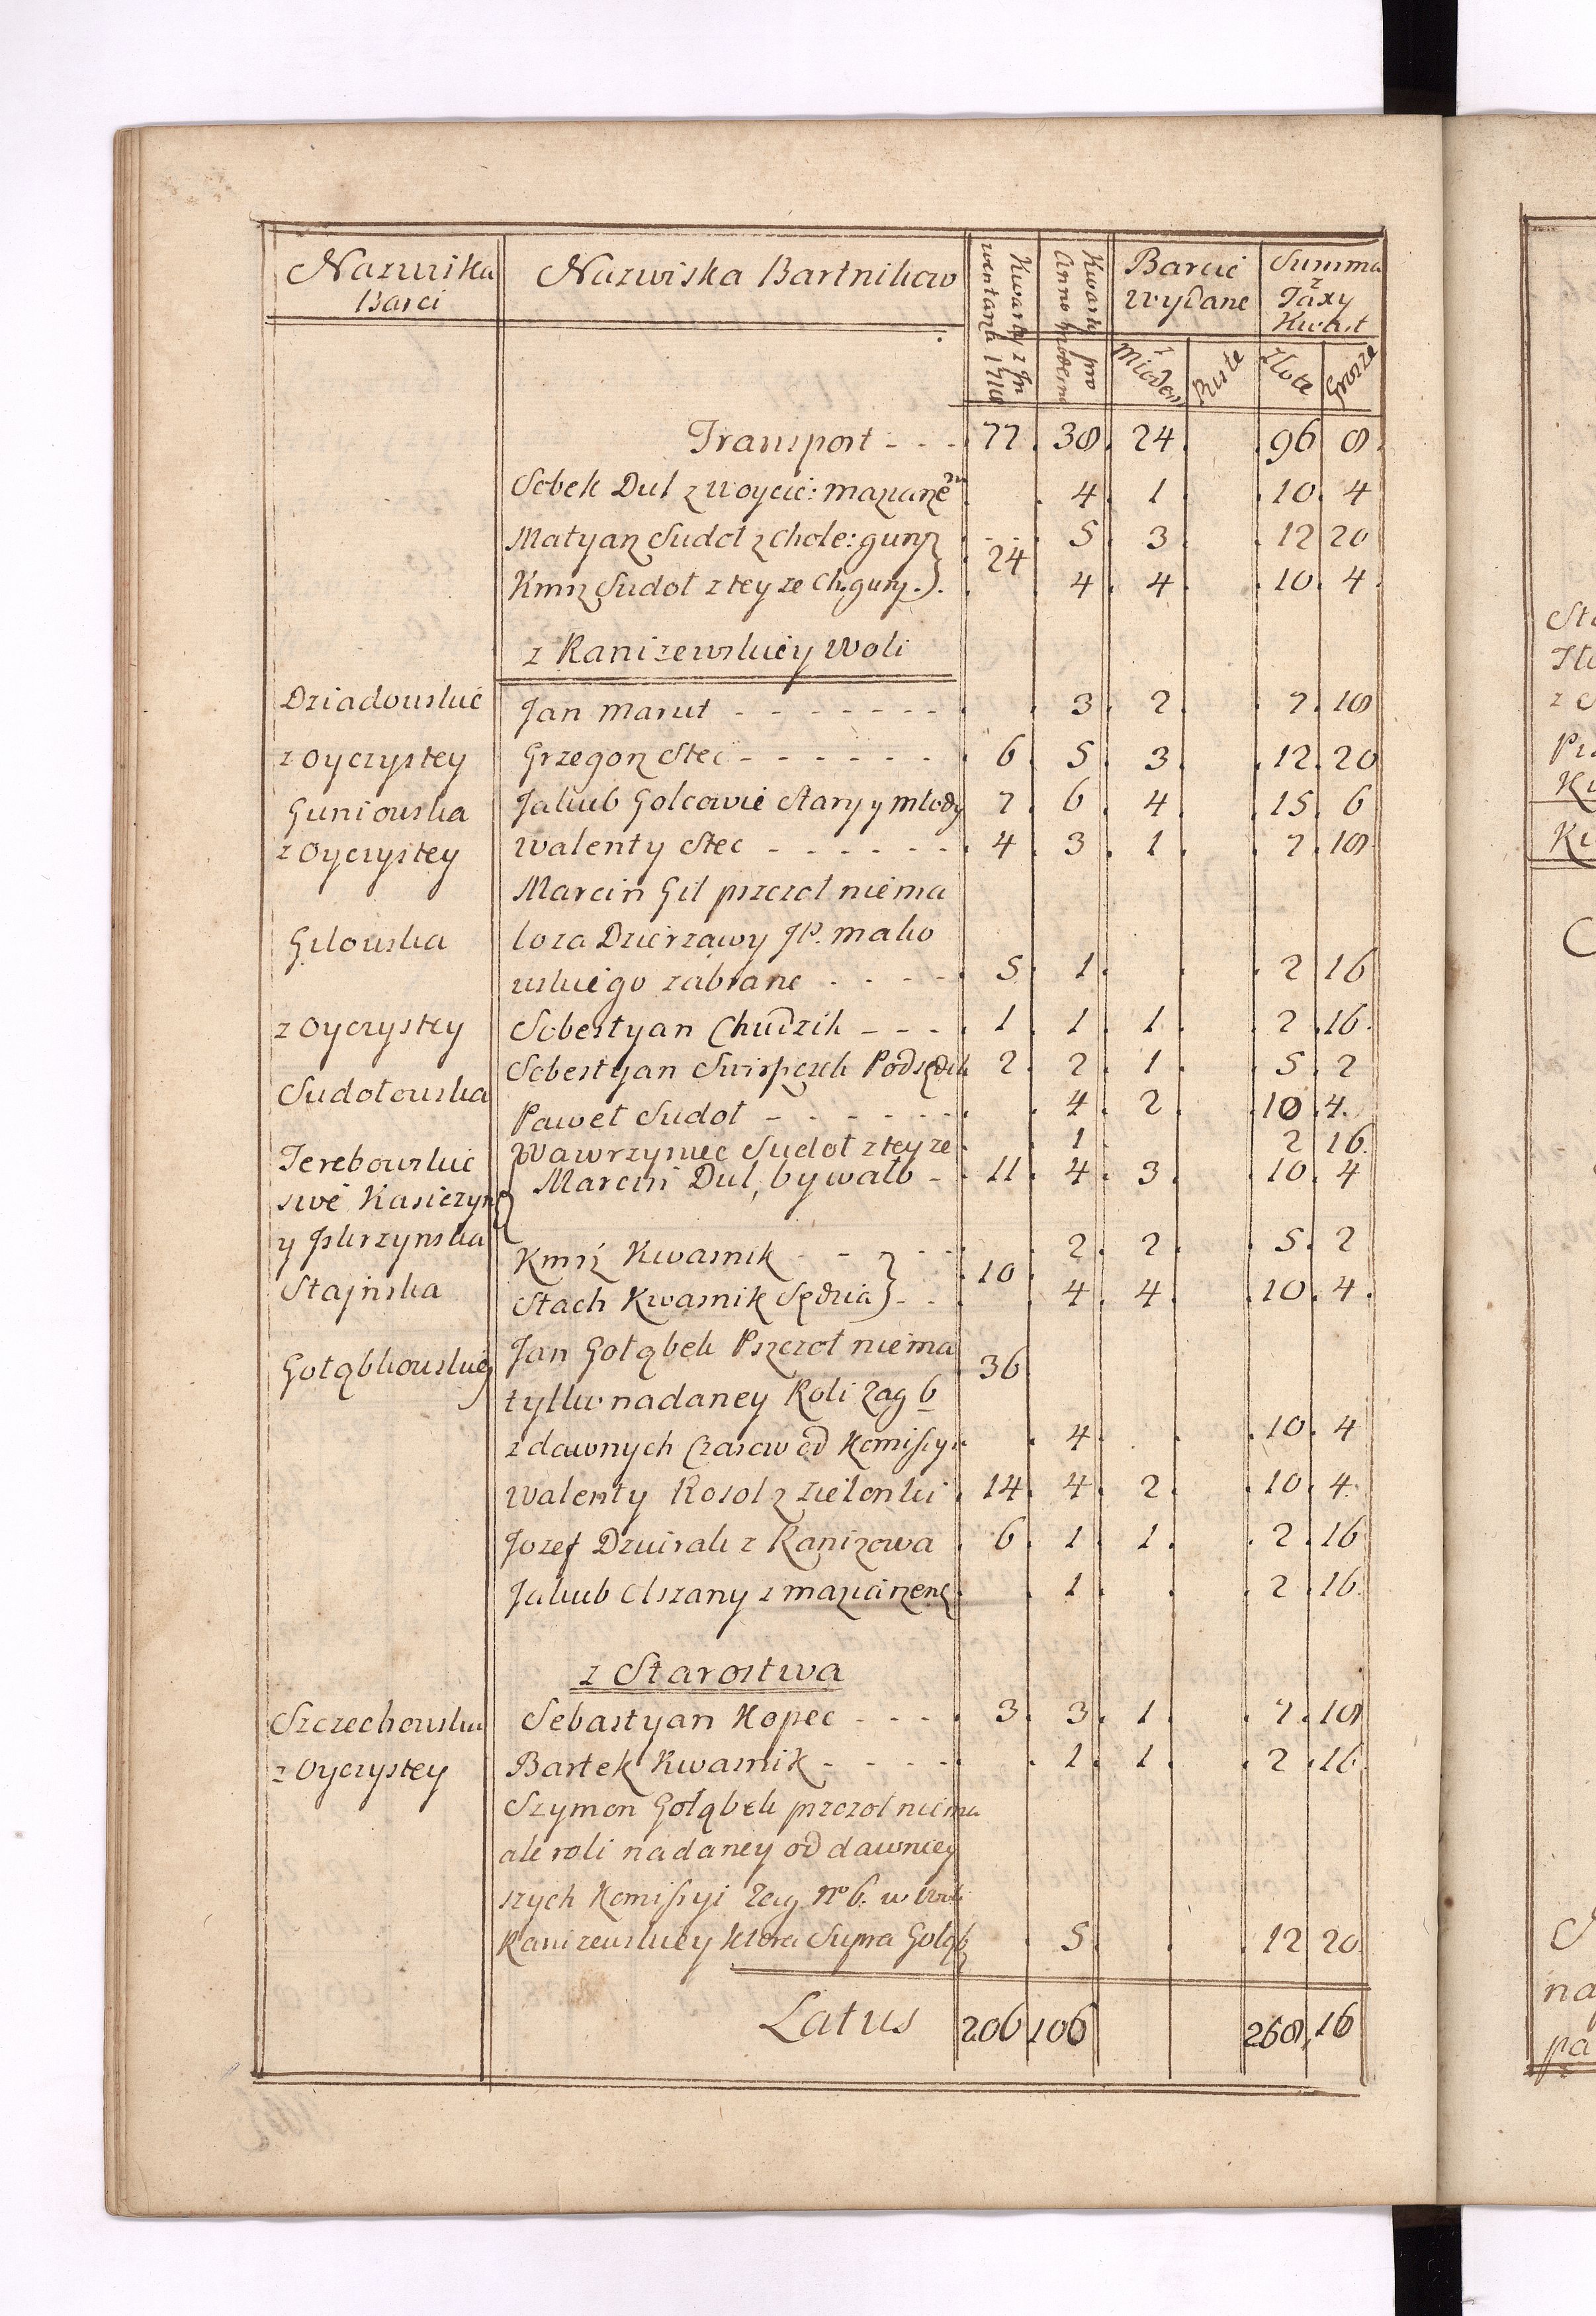 Nazwiska Barci | Nazwiska Bartnikow | Kwarty z In wentarza | Kwarty pro Anno moderno | Barcie wydane | Summa z Taxy Kwart
z Miodem | Puste | Złote | Grosze
Transport - - - 77. 38. 24. 96 8.
Sobek Dul z Woycie: mazianē 4. 1. 10. 4
Matyaz Sudoł z Chole: gury 24 5. 3. 12 20
Kmiz Sudoł z tey ze Ch. gury. 4. 4. 10. 4.
z Ranizewskiey Woli
Dziadowskie Jan Marut - - - 3. 2. 7. 18
z Oyczystey Grzegorz Stec - - - 6. 5. 3. 12. 20
Guniowska Jakub Golcowie Stary y młody 7. 6. 4. 15. 6
z Oyczystey Walenty Stec - - - 4. 3. 1. 7. 18.
Marcin Gil pszczoł niema
Gilowska loza Dzierzawy JP. mako
wskiego zabrane - - - 5. 1. 2 16
z Oyczystey Sobestyan Chudzik - - - 1. 1. 1. 2. 16.
Sobestyan Swirpczek Podsędek 2. 2. 1. 5. 2
Sudołowska Paweł Sudoł - - - 4. 2. 10. 4.
Wawrzyniec Sudoł z tey ze 1 2 16.
Terebowskie Marcin Dul, bywało - 11. 4. 3. 10. 4
swe Kasiczyn
y Jskrzynska
Kmiź Kwasnik - - 10. 2. 2. 5. 2
Stajnska Stach Kwasnik Sędzia - - 4. 4. 10. 4.
Gołąbkowskiey Jan Gołąbek Pszczoł niema 36
tylko nadaney Roli Zag 6
z dawnych Czasow od Komissyi 4. 10. 4
Walenty Rosol z Zielonki 14. 4. 2. 10. 4.
Jozef Dziurak z Ranizowa 6. 1. 1. 2. 16
Jakub Olszany z mazianenę 1. 2. 16.
z Starostwa
Szczechowska Sebastyan Kopec - - - 3. 3. 1. 7. 18
z Oyczystey Bartek Kwasnik - - - 1. 1. 2. 16.
Szymon Gołąbek pszczoł niema
ale roli nadaney od dawniey
szych Komissyi Zag No 6. w Woli
Ranizewskiey ktora Supra Gołąb 5. 12 20
Latus 206 106 268, 16